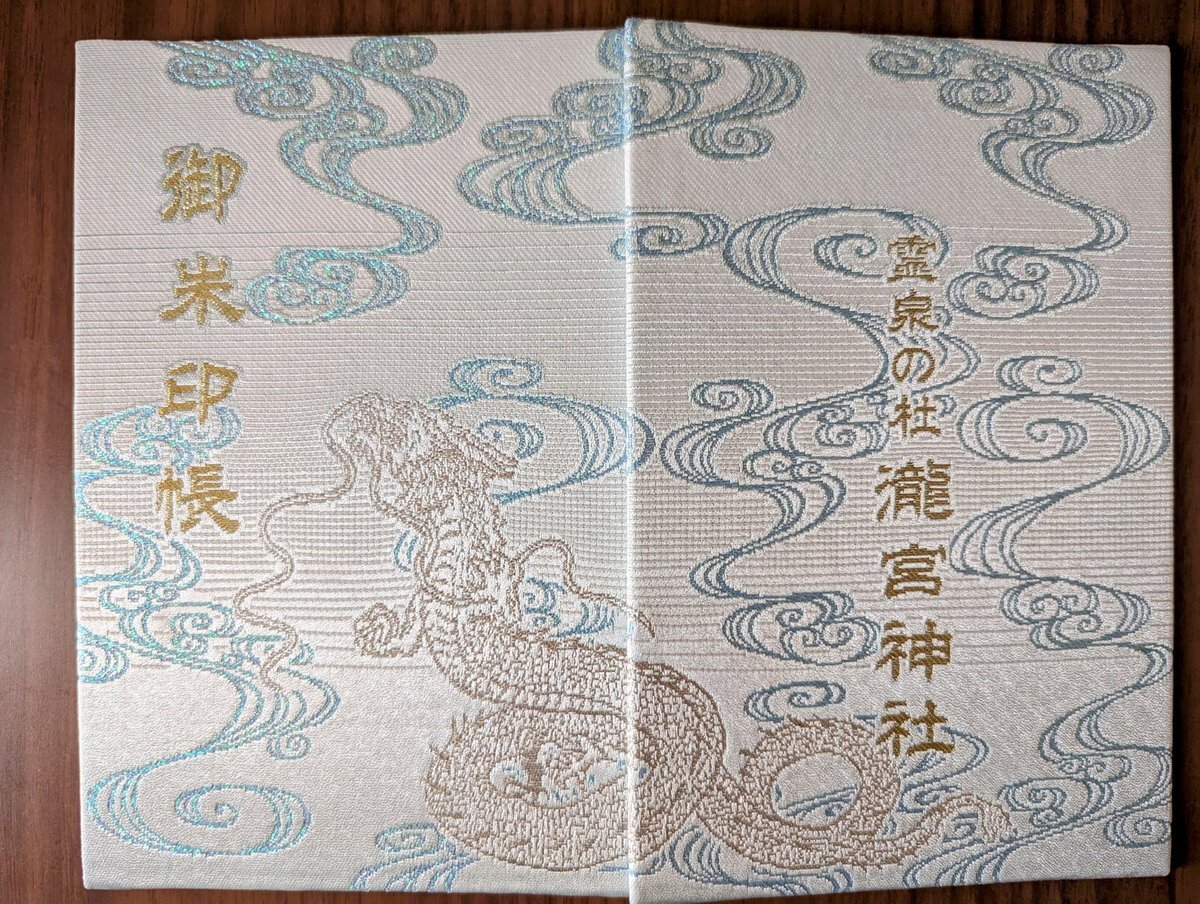 霊泉の杜 瀧宮神社
御朱印帳